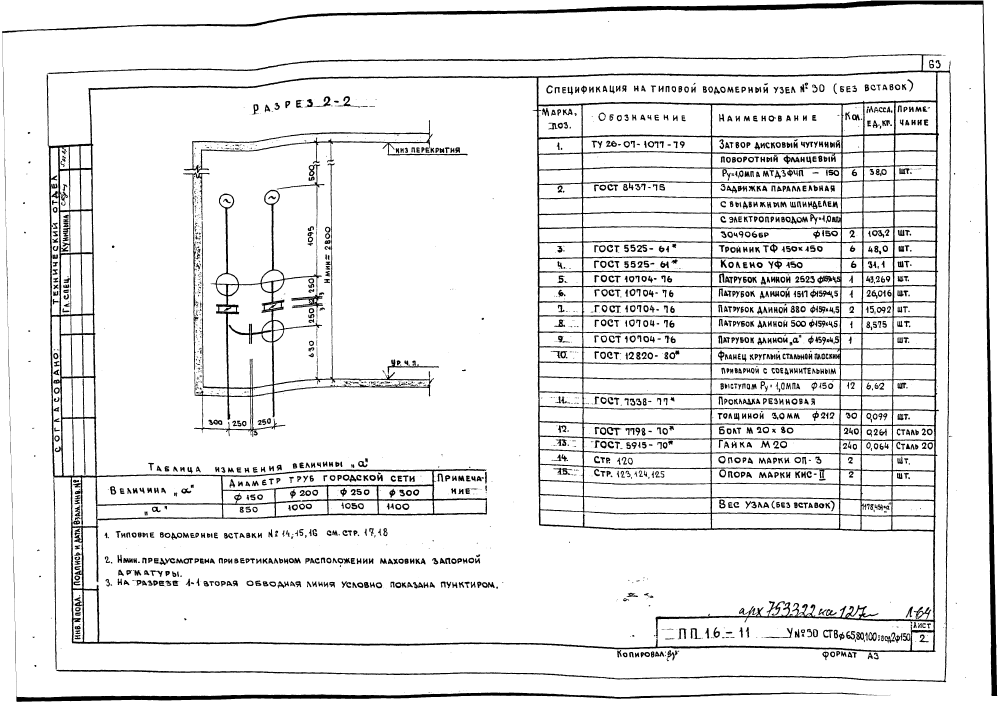 63
РАЗРЕЗ 2-2
НИЗ ПЕРЕКРЫТИЯ
500
1095
Hмин= 2800
250
250
630
УР. Ч. П.
300 250 250
СОГЛАСОВАНО:
ТЕХНИЧЕСКИЙ ОТДЕЛ
ГЛ. СПЕЦ. КУНИЦЫНА
ИНВ. N ПОДЛ. ПОДПИСЬ И ДАТА ВЗАМ. ИНВ. №
ТАБЛИЦА ИЗМЕНЕНИЯ ВЕЛИЧИНЫ „а"
ВЕЛИЧИНА „а" ДИАМЕТР ТРУБ ГОРОДСКОЙ СЕТИ ПРИМЕЧА-
НИЕ
ф 150 ф 200 ф 250 ф 300
„а" 850 1000 1050 1100
1. ТИПОВЫЕ ВОДОМЕРНЫЕ ВСТАВКИ № 14, 15, 16 СМ. СТР. 17, 18
2. Hмин. ПРЕДУСМОТРЕНА ПРИ ВЕРТИКАЛЬНОМ РАСПОЛОЖЕНИИ МАХОВИКА ЗАПОРНОЙ
АРМАТУРЫ.
3. НА РАЗРЕЗЕ 1-1 ВТОРАЯ ОБВОДНАЯ ЛИНИЯ УСЛОВНО ПОКАЗАНА ПУНКТИРОМ.
СПЕЦИФИКАЦИЯ НА ТИПОВОЙ ВОДОМЕРНЫЙ УЗЕЛ № 30 (БЕЗ ВСТАВОК)
МАРКА, ПОЗ. ОБОЗНАЧЕНИЕ НАИМЕНОВАНИЕ КОЛ. МАССА, ЕД., КГ. ПРИМЕ-
ЧАНИЕ
1. ТУ 26-07-1077-79 ЗАТВОР ДИСКОВЫЙ ЧУГУННЫЙ
ПОВОРОТНЫЙ ФЛАНЦЕВЫЙ
Ру=1,0МПА МТДЗФЧП — 150 6 38,0 ШТ.
2. ГОСТ 8437-75 ЗАДВИЖКА ПАРАЛЛЕЛЬНАЯ
С ВЫДВИЖНЫМ ШПИНДЕЛЕМ
С ЭЛЕКТРОПРИВОДОМ Ру=1,0МПА
30Ч906БР ф150 2 103,2 ШТ.
3. ГОСТ 5525-61* ТРОЙНИК ТФ 150×150 6 48,0 ШТ.
4. ГОСТ 5525-61* КОЛЕНО УФ 150 6 31,1 ШТ.
5. ГОСТ 10704-76 ПАТРУБОК ДЛИНОЙ 2523 ф159×4,5 1 43,269 ШТ.
6. ГОСТ 10704-76 ПАТРУБОК ДЛИНОЙ 1517 ф159×4,5 1 26,016 ШТ.
7. ГОСТ 10704-76 ПАТРУБОК ДЛИНОЙ 880 ф159×4,5 2 15,092 ШТ.
8. ГОСТ 10704-76 ПАТРУБОК ДЛИНОЙ 500 ф159×4,5 1 8,575 ШТ.
9. ГОСТ 10704-76 ПАТРУБОК ДЛИНОЙ „а" ф159×4,5 1 ШТ.
10. ГОСТ 12820-80* ФЛАНЕЦ КРУГЛЫЙ СТАЛЬНОЙ ПЛОСКИЙ
ПРИВАРНОЙ С СОЕДИНИТЕЛЬНЫМ
ВЫСТУПОМ Ру=1,0МПА ф150 12 6,62 ШТ.
11. ГОСТ 7338-77* ПРОКЛАДКА РЕЗИНОВАЯ
ТОЛЩИНОЙ 3,0ММ ф212 30 0,099 ШТ.
12. ГОСТ 7798-70* БОЛТ М 20 × 80 240 0,261 СТАЛЬ 20
13. ГОСТ 5915-70* ГАЙКА М20 240 0,064 СТАЛЬ 20
14. СТР. 120 ОПОРА МАРКИ ОП-3 2 ШТ.
15. СТР. 123, 124, 125 ОПОРА МАРКИ КНС-II 2 ШТ.
ВЕС УЗЛА (БЕЗ ВСТАВОК)
арх 753322 на 127л Л-64
ПП 1.6-11 У№30 СТВф65,80,100 ввод 2ф150 ЛИСТ
2
КОПИРОВАЛ: ФОРМАТ А3